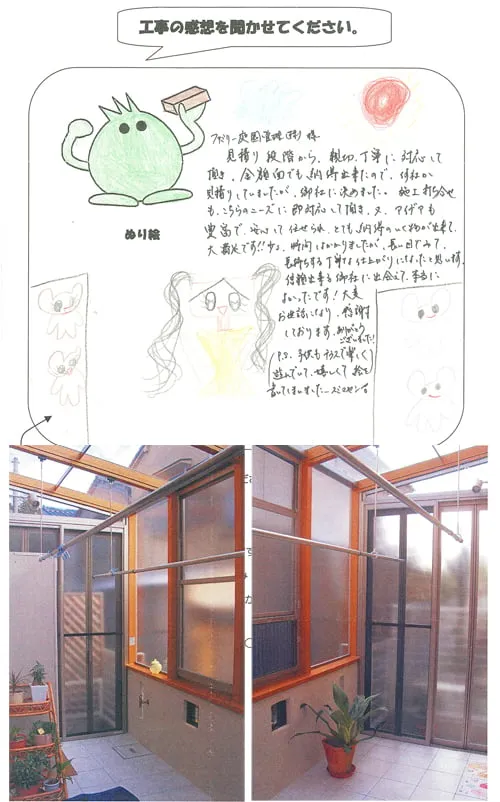 工事の感想を聞かせてください。
ファミリー庭園管理(株)様
見積り段階から、親切、丁寧に対応して
頂き、金額面でも納得出来たので、何社か
見積りしていましたが、御社に決めました。施工打ち合せ
も、こちらのニーズに即対応して頂き、又、アイデアも
豊富で、安心して任せられ、とても納得のいく物が出来て、
大満足です!!
時間はかかりましたが、長い目でみて、
長持ちする丁寧な仕上がりになったと思います。
信頼出来る御社に出会えて、本当に
よかったです!大変
お世話になり、感謝
しております。ありがとう
ございました!
(P.S. 子供もテラスで楽しく
遊んでいて、嬉しくて絵を
書いてしまいました…スミマセン
ぬり絵